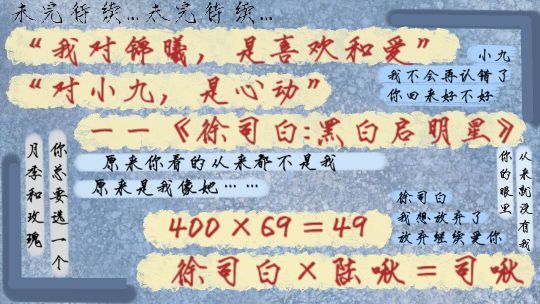 未完待续…未完待续…
“我对锦曦，是喜欢和爱”
“对小九，是心动”
——《徐司白:黑白启明星》
小九
我不会再认错了
你回来好不好
原来你看的从来都不是我
原来是我像她……
你总要选一个
月季和玫瑰
从来就没有我
你的眼里
徐司白
我想放弃了
放弃继续爱你
400×69=49
徐司白×陆啾=司啾